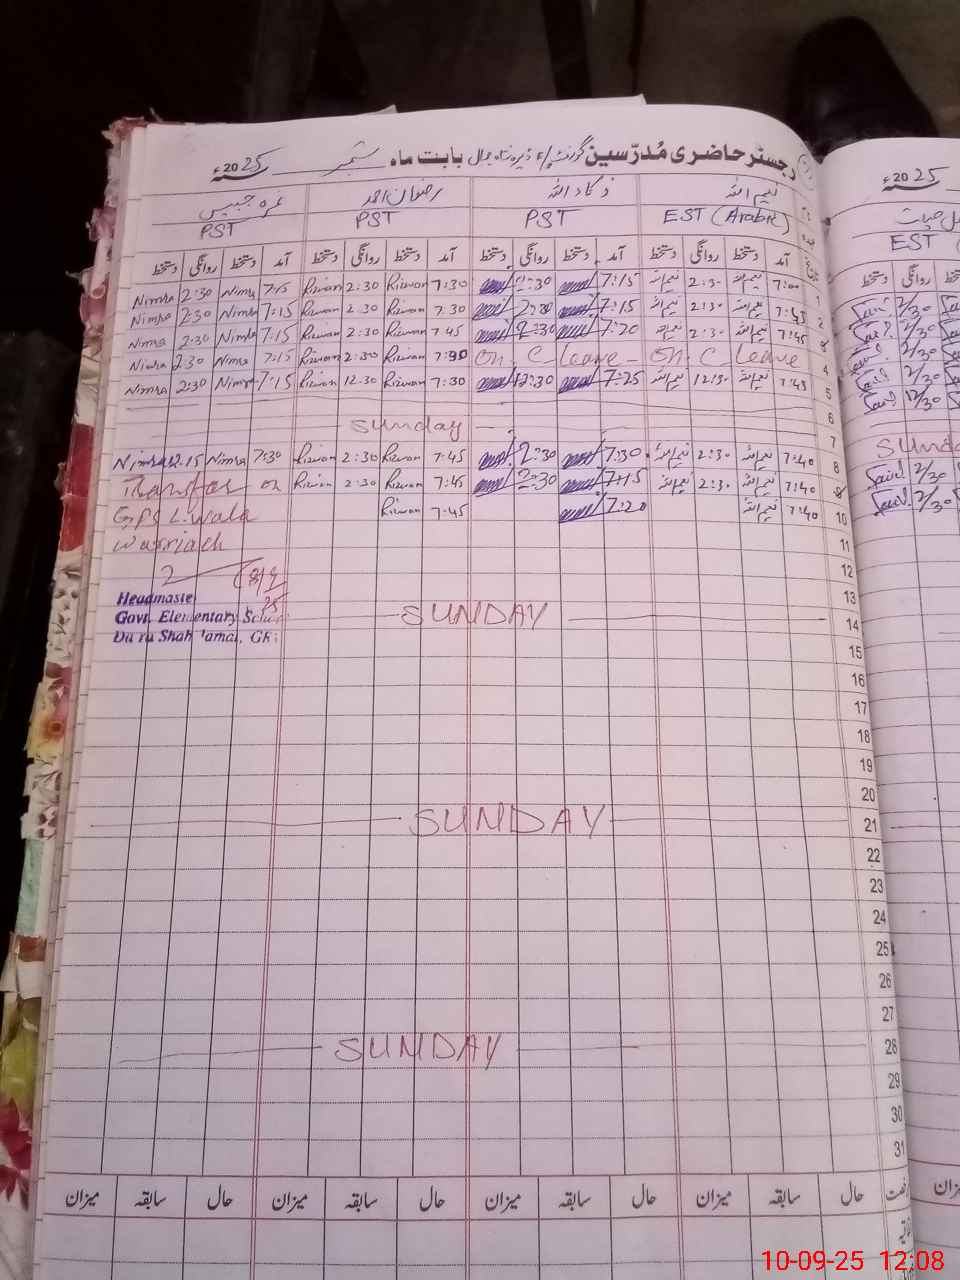 رجسٹر حاضری مُدرّسین گورنمنٹ ڈیرہ شاہ جمال بابت ماہ ستمبر 2025ء
نعیم اللہ ذکاء اللہ رضوان احمد
EST (Arabic) PST PST PST
آمد دستخط روانگی دستخط آمد دستخط روانگی دستخط آمد دستخط روانگی دستخط آمد دستخط روانگی دستخط
1 7:00 نعیم اللہ 2:30 نعیم اللہ 7:15 2:30 7:30 Rizwan 2:30 Rizwan 7:15 Nimra 2:30 Nimra
2 7:43 نعیم اللہ 2:30 نعیم اللہ 7:15 2:30 7:30 Rizwan 2:30 Rizwan 7:15 Nimra 2:30 Nimra
3 7:45 نعیم اللہ 2:30 نعیم اللہ 7:20 2:30 7:45 Rizwan 2:30 Rizwan 7:15 Nimra 2:30 Nimra
4 On C Leave On C leave Rizwan 2:30 Rizwan 7:15 Nimra 2:30 Nimra
5 7:45 نعیم اللہ 12:30 نعیم اللہ 7:25 12:30 7:30 Rizwan 12:30 Rizwan 7:15 Nimra 2:30 Nimra
6
7 Sunday
8 7:40 نعیم اللہ 2:30 نعیم اللہ 7:30 2:30 7:45 Rizwan 2:30 Rizwan 7:30 Nimra 12:15 Nimra
9 7:40 نعیم اللہ 2:30 نعیم اللہ 7:15 2:30 7:45 Rizwan 2:30 Rizwan Transfer on
10 7:40 نعیم اللہ 7:20 7:45 Rizwan GPS L.Wala
11 Warriach
12
13 Headmaste
Govt. Elementary
14 SUNDAY
Shah Jamal,
15
16
17
18
19
20
21 SUNDAY
22
23
24
25
26
27
28 SUNDAY
29
30
31
حال سابقہ میزان حال سابقہ میزان حال سابقہ میزان حال سابقہ میزان
2025ء
EST
2/30
2/30
2/30
2/30
12/30
Sunda
2/30
2/30
10-09-25 12:08